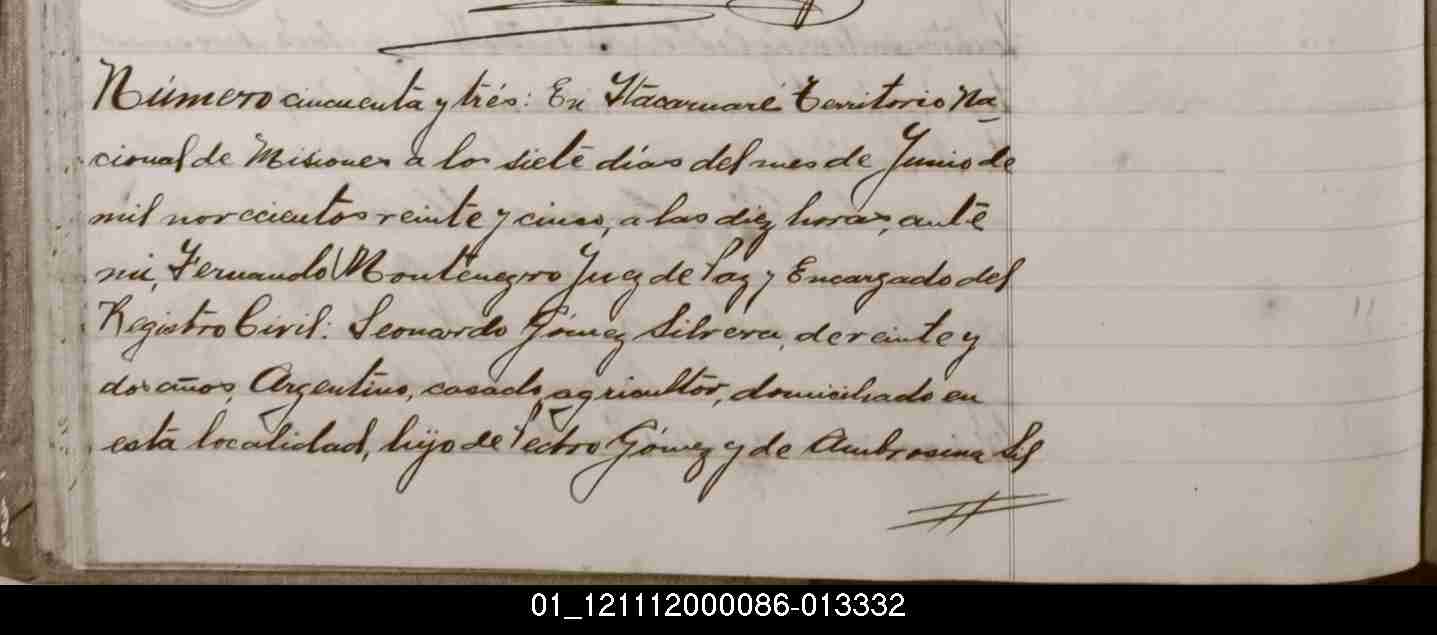 Número cincuenta y trés: En Itacaruaré Territorio Na_
cional de Misiones a los siete días del mes de Junio de
mil novecientos veinte y cinco, a las diez horas, ante
mi, Fernando Montenegro Juez de Paz y Encargado del
Registro Civil: Leonardo Gómez Silvera, de veinte y
dos años, Argentino, casado, agricultor, domiciliado en
esta localidad, hijo de Pedro Gómez y de Ambrosina Sil
01_121112000086-013332